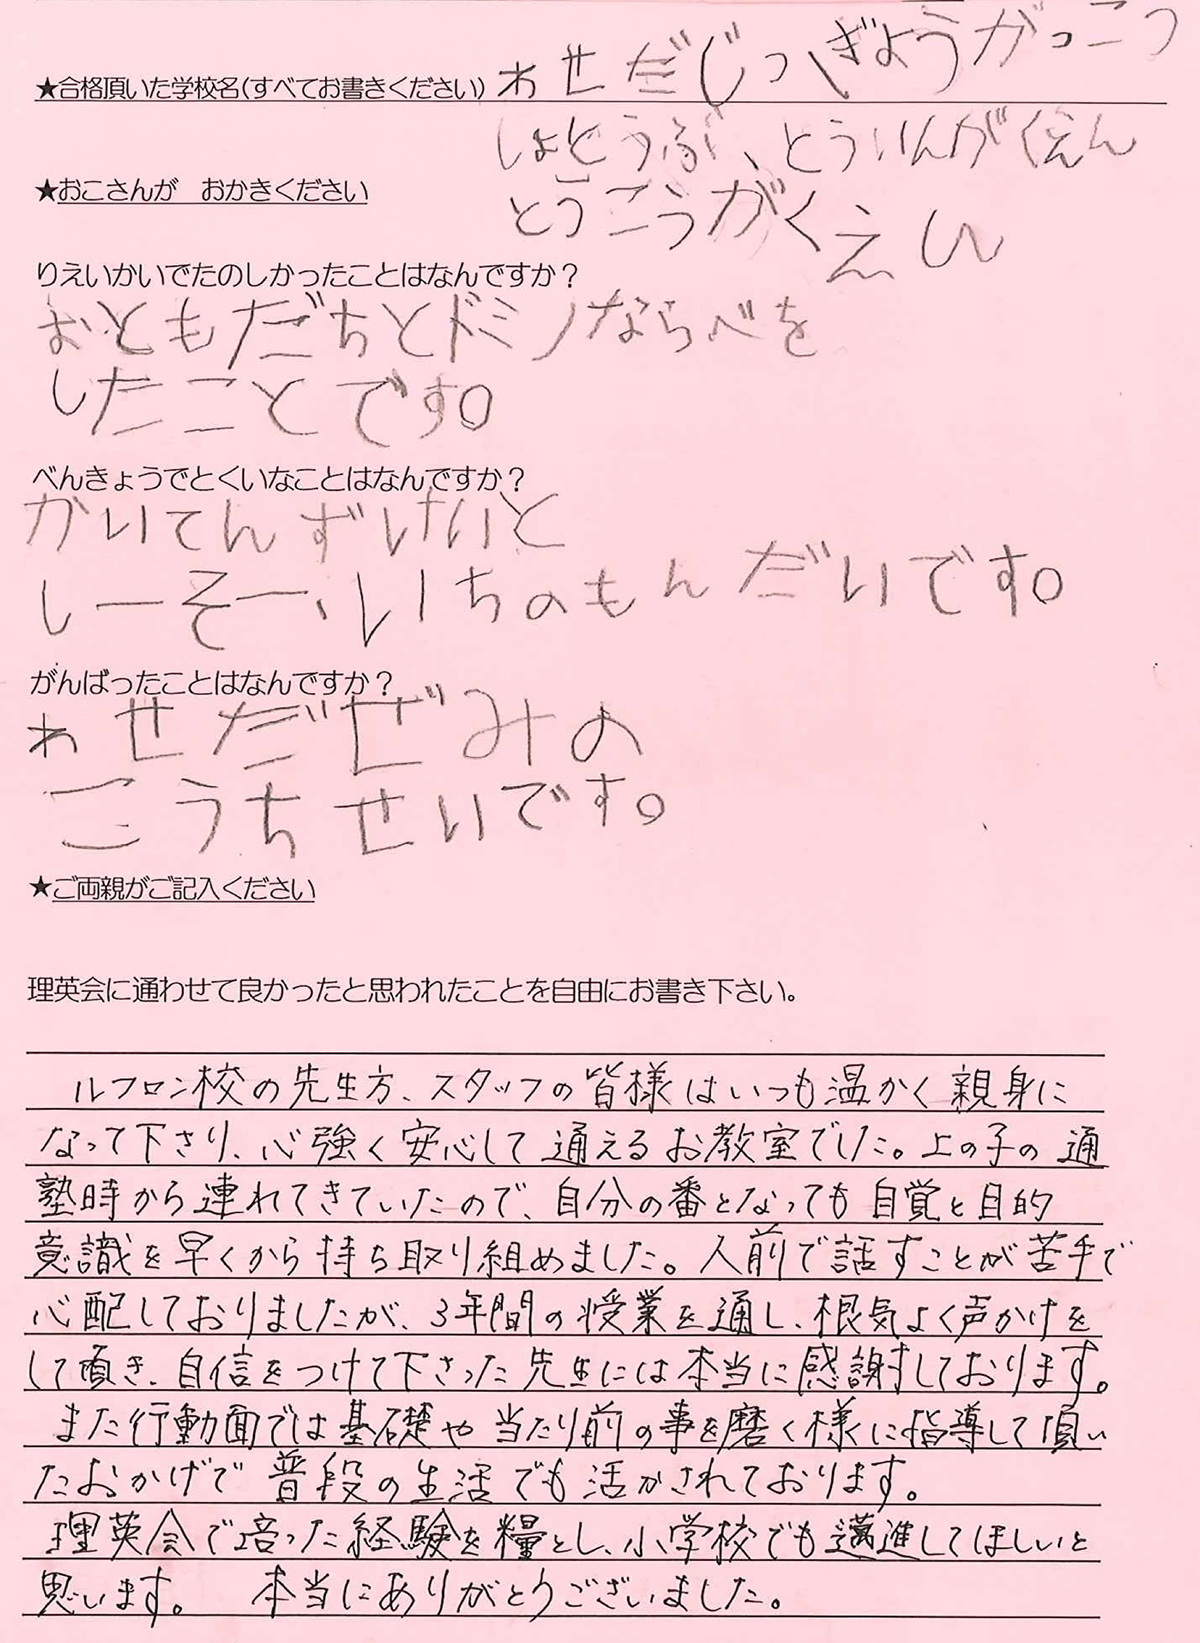 ★合格頂いた学校名(すべてお書きください) わせだじつぎょうがっこう
しょとうぶ、とういんがくえん
★おこさんが　おかきください
とうこうがくえん
りえいかいでたのしかったことはなんですか？
おともだちとドミノならべを
したことです。
べんきょうでとくいなことはなんですか？
かいてんずけいと
しーそー、いちのもんだいです。
がんばったことはなんですか？
わせだぜみの
こうちせいです。
★ご両親がご記入ください
理英会に通わせて良かったと思われたことを自由にお書き下さい。
ルフロン校の先生方、スタッフの皆様はいつも温かく親身に
なって下さり、心強く安心して通えるお教室でした。上の子の通
塾時から連れてきていたので、自分の番となっても自覚と目的
意識を早くから持ち取り組めました。人前で話すことが苦手で
心配しておりましたが、3年間の授業を通し、根気よく声かけを
して頂き、自信をつけて下さった先生には本当に感謝しております。
また行動面では基礎や当たり前の事を磨く様に指導して頂い
たおかげで普段の生活でも活かされております。
理英会で培った経験を糧とし、小学校でも邁進してほしいと
思います。　本当にありがとうございました。